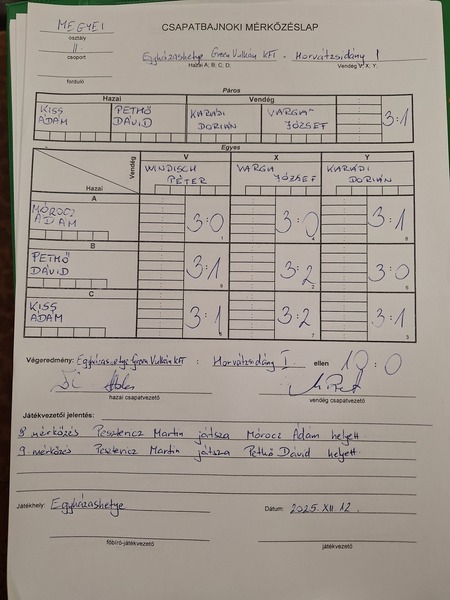 MEGYEI
CSAPATBAJNOKI MÉRKŐZÉSLAP
osztály
II
csoport
Egyházashetye Green Vulkán KFT - Horvátzsidány I
Hazai A, B, C, D. Vendég V, X, Y,
forduló
Páros
Hazai Vendég
KISS ÁDÁM PETHŐ DÁVID KARÁDI DORIÁN VARGA JÓZSEF 3:1
Egyes
Vendég V X Y
Hazai WINDISCH PÉTER VARGA JÓZSEF KARÁDI DORIÁN
A
MÓROCZ ÁDÁM 3:0 3:0 3:1
B
PETHŐ DÁVID 3:1 3:2 3:0
C
KISS ÁDÁM 3:1 3:2 3:1
Végeredmény: Egyházashetye Green Vulkán KFT : Horvátzsidány I. ellen 10:0
hazai csapatvezető vendég csapatvezető
Játékvezetői jelentés:
8 mérkőzés Pesztericz Martin játsza Mórocz Ádám helyett
9 mérkőzés Pesztericz Martin játsza Pethő Dávid helyett
Játékhely: Egyházashetye Dátum: 2025. XII 12.
főbíró-játékvezető játékvezető